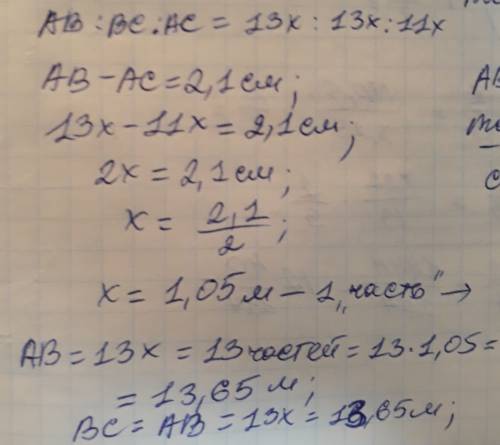 AB : BC : AC = 13x : 13x : 11x
AB - AC = 2,1 см;
13x - 11x = 2,1 см;
2x = 2,1 см;
x = 2,1/2;
x = 1,05 м - 1 „часть" →
AB = 13x = 13 частей = 13 · 1,05 =
= 13,65 м;
BC = AB = 13x = 13,65 м;
AB